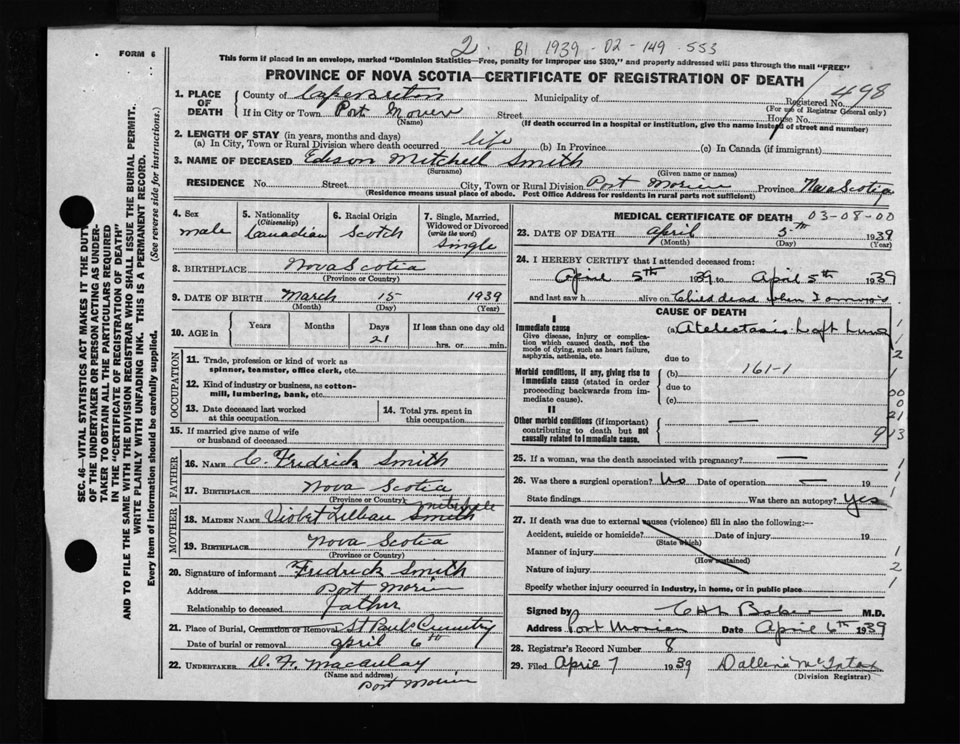 2. B1 1939-02-149-553
FORM 6
This form if placed in an envelope, marked "Dominion Statistics—Free, penalty for improper use $300," and properly addressed will pass through the mail "FREE"
PROVINCE OF NOVA SCOTIA—CERTIFICATE OF REGISTRATION OF DEATH
1. PLACE OF DEATH County of Cape Breton Municipality of Registered No. 498
(For use of Registrar General only)
If in City or Town Port Morien Street House No.
(Name) (If death occurred in a hospital or institution, give the name instead of street and number)
2. LENGTH OF STAY (in years, months and days)
(a) In City, Town or Rural Division where death occurred life (b) In Province (c) In Canada (if immigrant)
3. NAME OF DECEASED Edison Mitchell Smith
(Surname) (Given name or names)
RESIDENCE No. Street City, Town or Rural Division Port Morien Province Nova Scotia
(Residence means usual place of abode. Post Office Address for residents in rural parts not sufficient)
SEC. 46—VITAL STATISTICS ACT MAKES IT THE DUTY
OF THE UNDERTAKER OR PERSON ACTING AS UNDER-
TAKER TO OBTAIN ALL THE PARTICULARS REQUIRED
IN THE "CERTIFICATE OF REGISTRATION OF DEATH"
AND TO FILE THE SAME WITH THE DIVISION REGISTRAR WHO SHALL ISSUE THE BURIAL PERMIT.
WRITE PLAINLY WITH UNFADING INK. THIS IS A PERMANENT RECORD.
Every item of information should be carefully supplied. (See reverse side for instructions.)
4. Sex male
5. Nationality (Citizenship) Canadian
6. Racial Origin Scotch
7. Single, Married, Widowed or Divorced (write the word) Single
8. BIRTHPLACE Nova Scotia
(Province or Country)
9. DATE OF BIRTH March 15 1939
(Month) (Day) (Year)
10. AGE in Years Months Days If less than one day old
21 hrs. or min.
OCCUPATION
11. Trade, profession or kind of work as
spinner, teamster, office clerk, etc.
12. Kind of industry or business, as cotton-
mill, lumbering, bank, etc.
13. Date deceased last worked at this occupation
14. Total yrs. spent in this occupation
15. If married give name of wife
or husband of deceased
FATHER
16. NAME C. Fredrick Smith
17. BIRTHPLACE Nova Scotia
(Province or Country)
MOTHER
18. MAIDEN NAME Violet Smith
19. BIRTHPLACE Nova Scotia
(Province or Country)
20. Signature of informant Fredrick Smith
Address Port Morien
Relationship to deceased father
21. Place of Burial, Cremation or Removal St Pauls Cemetry
Date of burial or removal april 6th
22. UNDERTAKER D. F. Macaulay
(Name and address)
Port Morien
MEDICAL CERTIFICATE OF DEATH 03-08-00
23. DATE OF DEATH April 5th 1939
(Month) (Day) (Year)
24. I HEREBY CERTIFY that I attended deceased from:
April 5th 1939 to April 5th 1939
and last saw h alive on Child dead when I
CAUSE OF DEATH
I
Immediate cause (a) Atelectasis Left Lung
Give disease, injury or complica-
tion which caused death, not the
mode of dying, such as heart failure,
asphyxia, asthenia, etc. due to
Morbid conditions, if any, giving rise to
immediate cause (stated in order
proceeding backwards from
immediate cause). (b) 161-1
due to
(c)
II
Other morbid conditions (if important)
contributing to death but not
causally related to immediate cause. —
25. If a woman, was the death associated with pregnancy? —
26. Was there a surgical operation? No Date of operation — 19
State findings Was there an autopsy? Yes
27. If death was due to external causes (violence) fill in also the following:—
Accident, suicide or homicide? Date of injury 19
(State which)
Manner of injury
(How sustained)
Nature of injury
Specify whether injury occurred in industry, in home, or in public place
Signed by M.D.
Address Port Morien Date April 6th 1939
28. Registrar's Record Number 8
29. Filed April 7 1939
(Division Registrar)